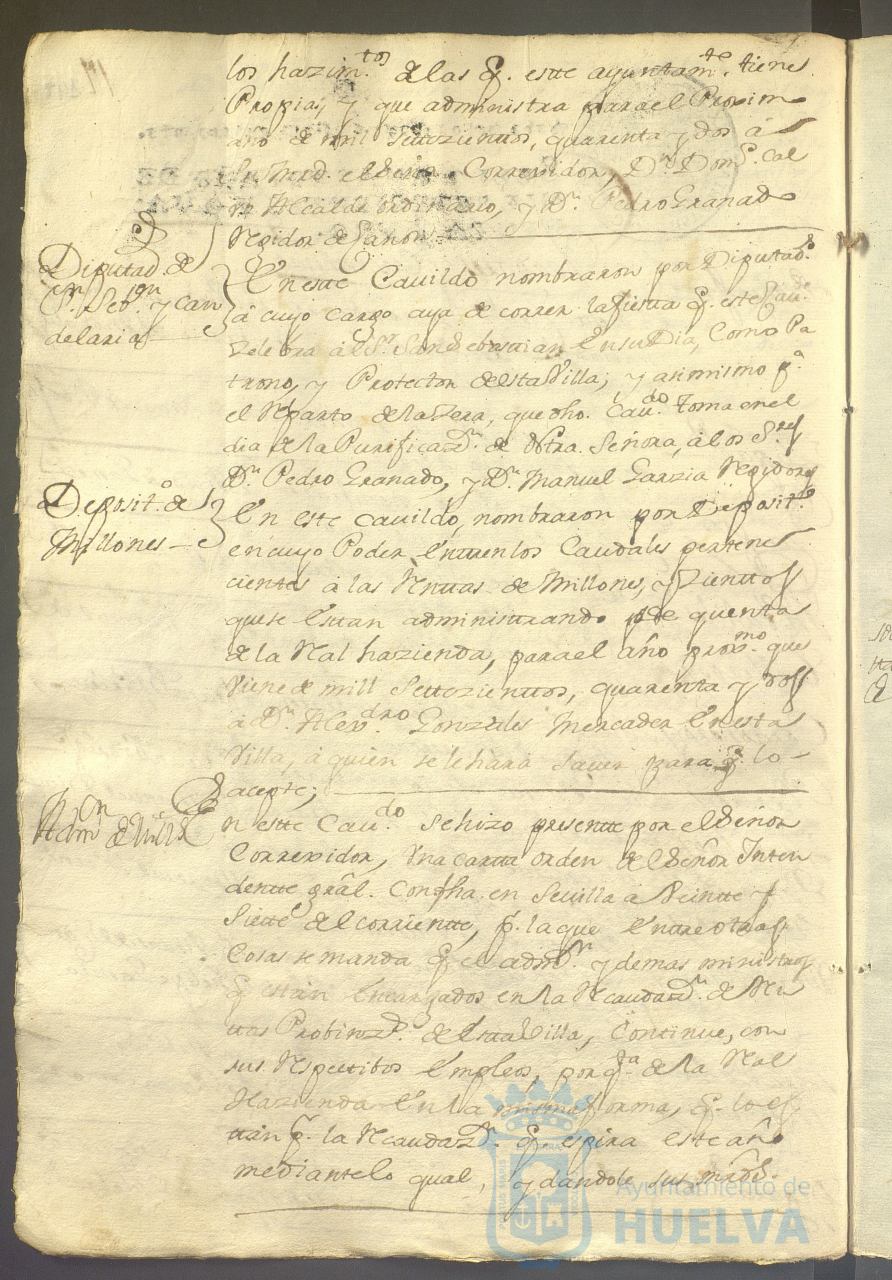 los hazim.tos de las q. este ayuntam.to tiene
Propias, y que administra para el Proxim
año de mill settezienttos, quarenta y dos á
Su Mrd. el Señor Corregidor, Dn. Dom.o Cal
Alcalde Ordinario, y Dn. Pedro Granado
Regidor de Canon
Diputad. de
Sn. Seb.an y can
delaria
En este Cavildo nombraron por Diputad.s
á cuyo cargo aya de correr la fiesta q. este Cau.do
Zelebra al Sr. San Sebastian en su Dia, como Pa
trono, y Protector de esta Villa; y asimismo p.a
el Reparto de la Zera, que dho. Cau.do toma en el
dia de la Purificaz.n de Ntra. Señora, á los S.res
Dn. Pedro Granado, y Dn. Manuel Garzia Regidores
Deposit.o de
Millones
En este Cavildo, nombraron por Deposit.o
en cuyo Poder entren los Caudales pertene
cientes á las Rentas de Millones, y Zienttos
que se estan administrando de quenta
de la Real hazienda, para el año prox.mo que
viene de mill settezienttos, quarenta y dos
á Dn. Alex.dro Gonzales Mercader en esta
Villa, á quien se le hará saver para q. lo
acepte;
Adm.n de Mill.s
En este Cau.do se hizo presente por el Señor
Corregidor, una carta orden de el Señor Inten
dente gral. con fha. en Sevilla á Veintte y
Siette de el corriente, p. la que entre otras
Cosas se manda q. el adm.or y demas ministros
q. están encargados en la Recaudaz.n de Ren
tas Probinz.s de esta Villa, Continue, con
sus Respectibos empleos, por q.ta de la Real
Hazienda en la misma forma, q. lo es
tán p. la Recaudaz.n q. espira este año
mediante lo qual, y dandole sus mrds.
Ayuntamiento de
HUELVA